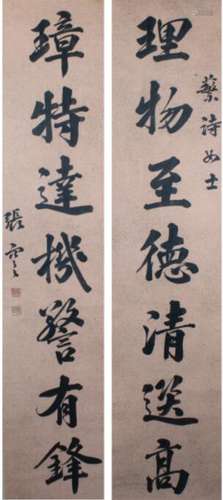 詩女士
理物至德清選高
璋特達機警有鋒
張